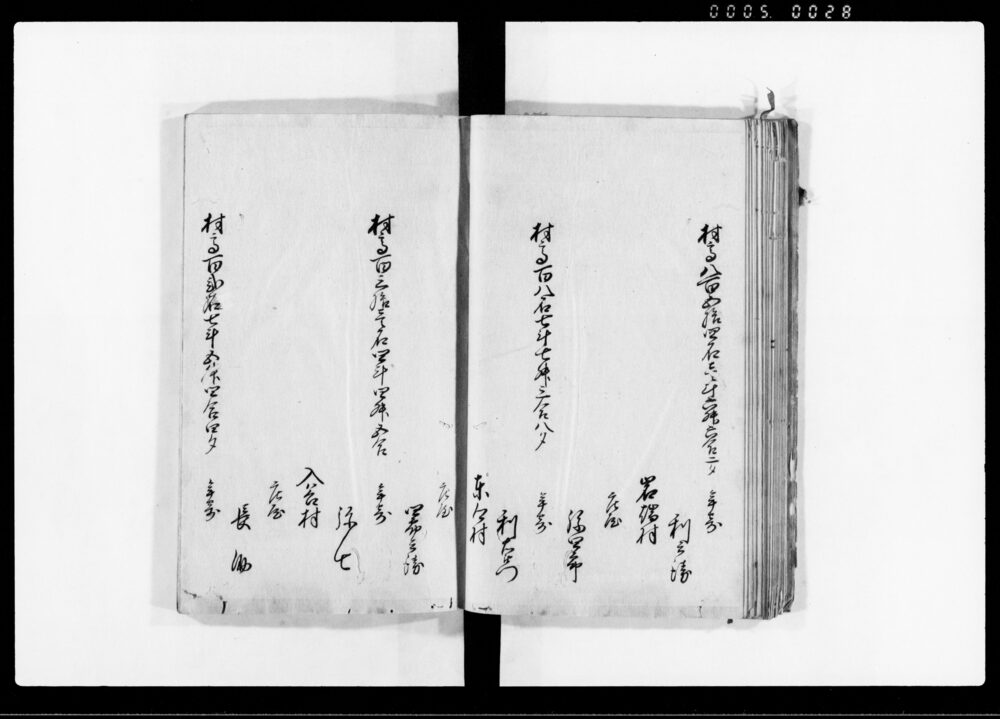 0005 0028
村高八百五拾四石六斗六升六合二夕
年寄
利兵衛
岩端村
庄屋
弥四郎
村高百八石七斗七升三合八夕
年寄
利右衛門
東 村
庄屋
四郎兵衛
村高百三拾三石四斗四升五合
年寄
弥七
入谷村
庄屋
長
村高百弐石七斗五升四合四夕
年寄